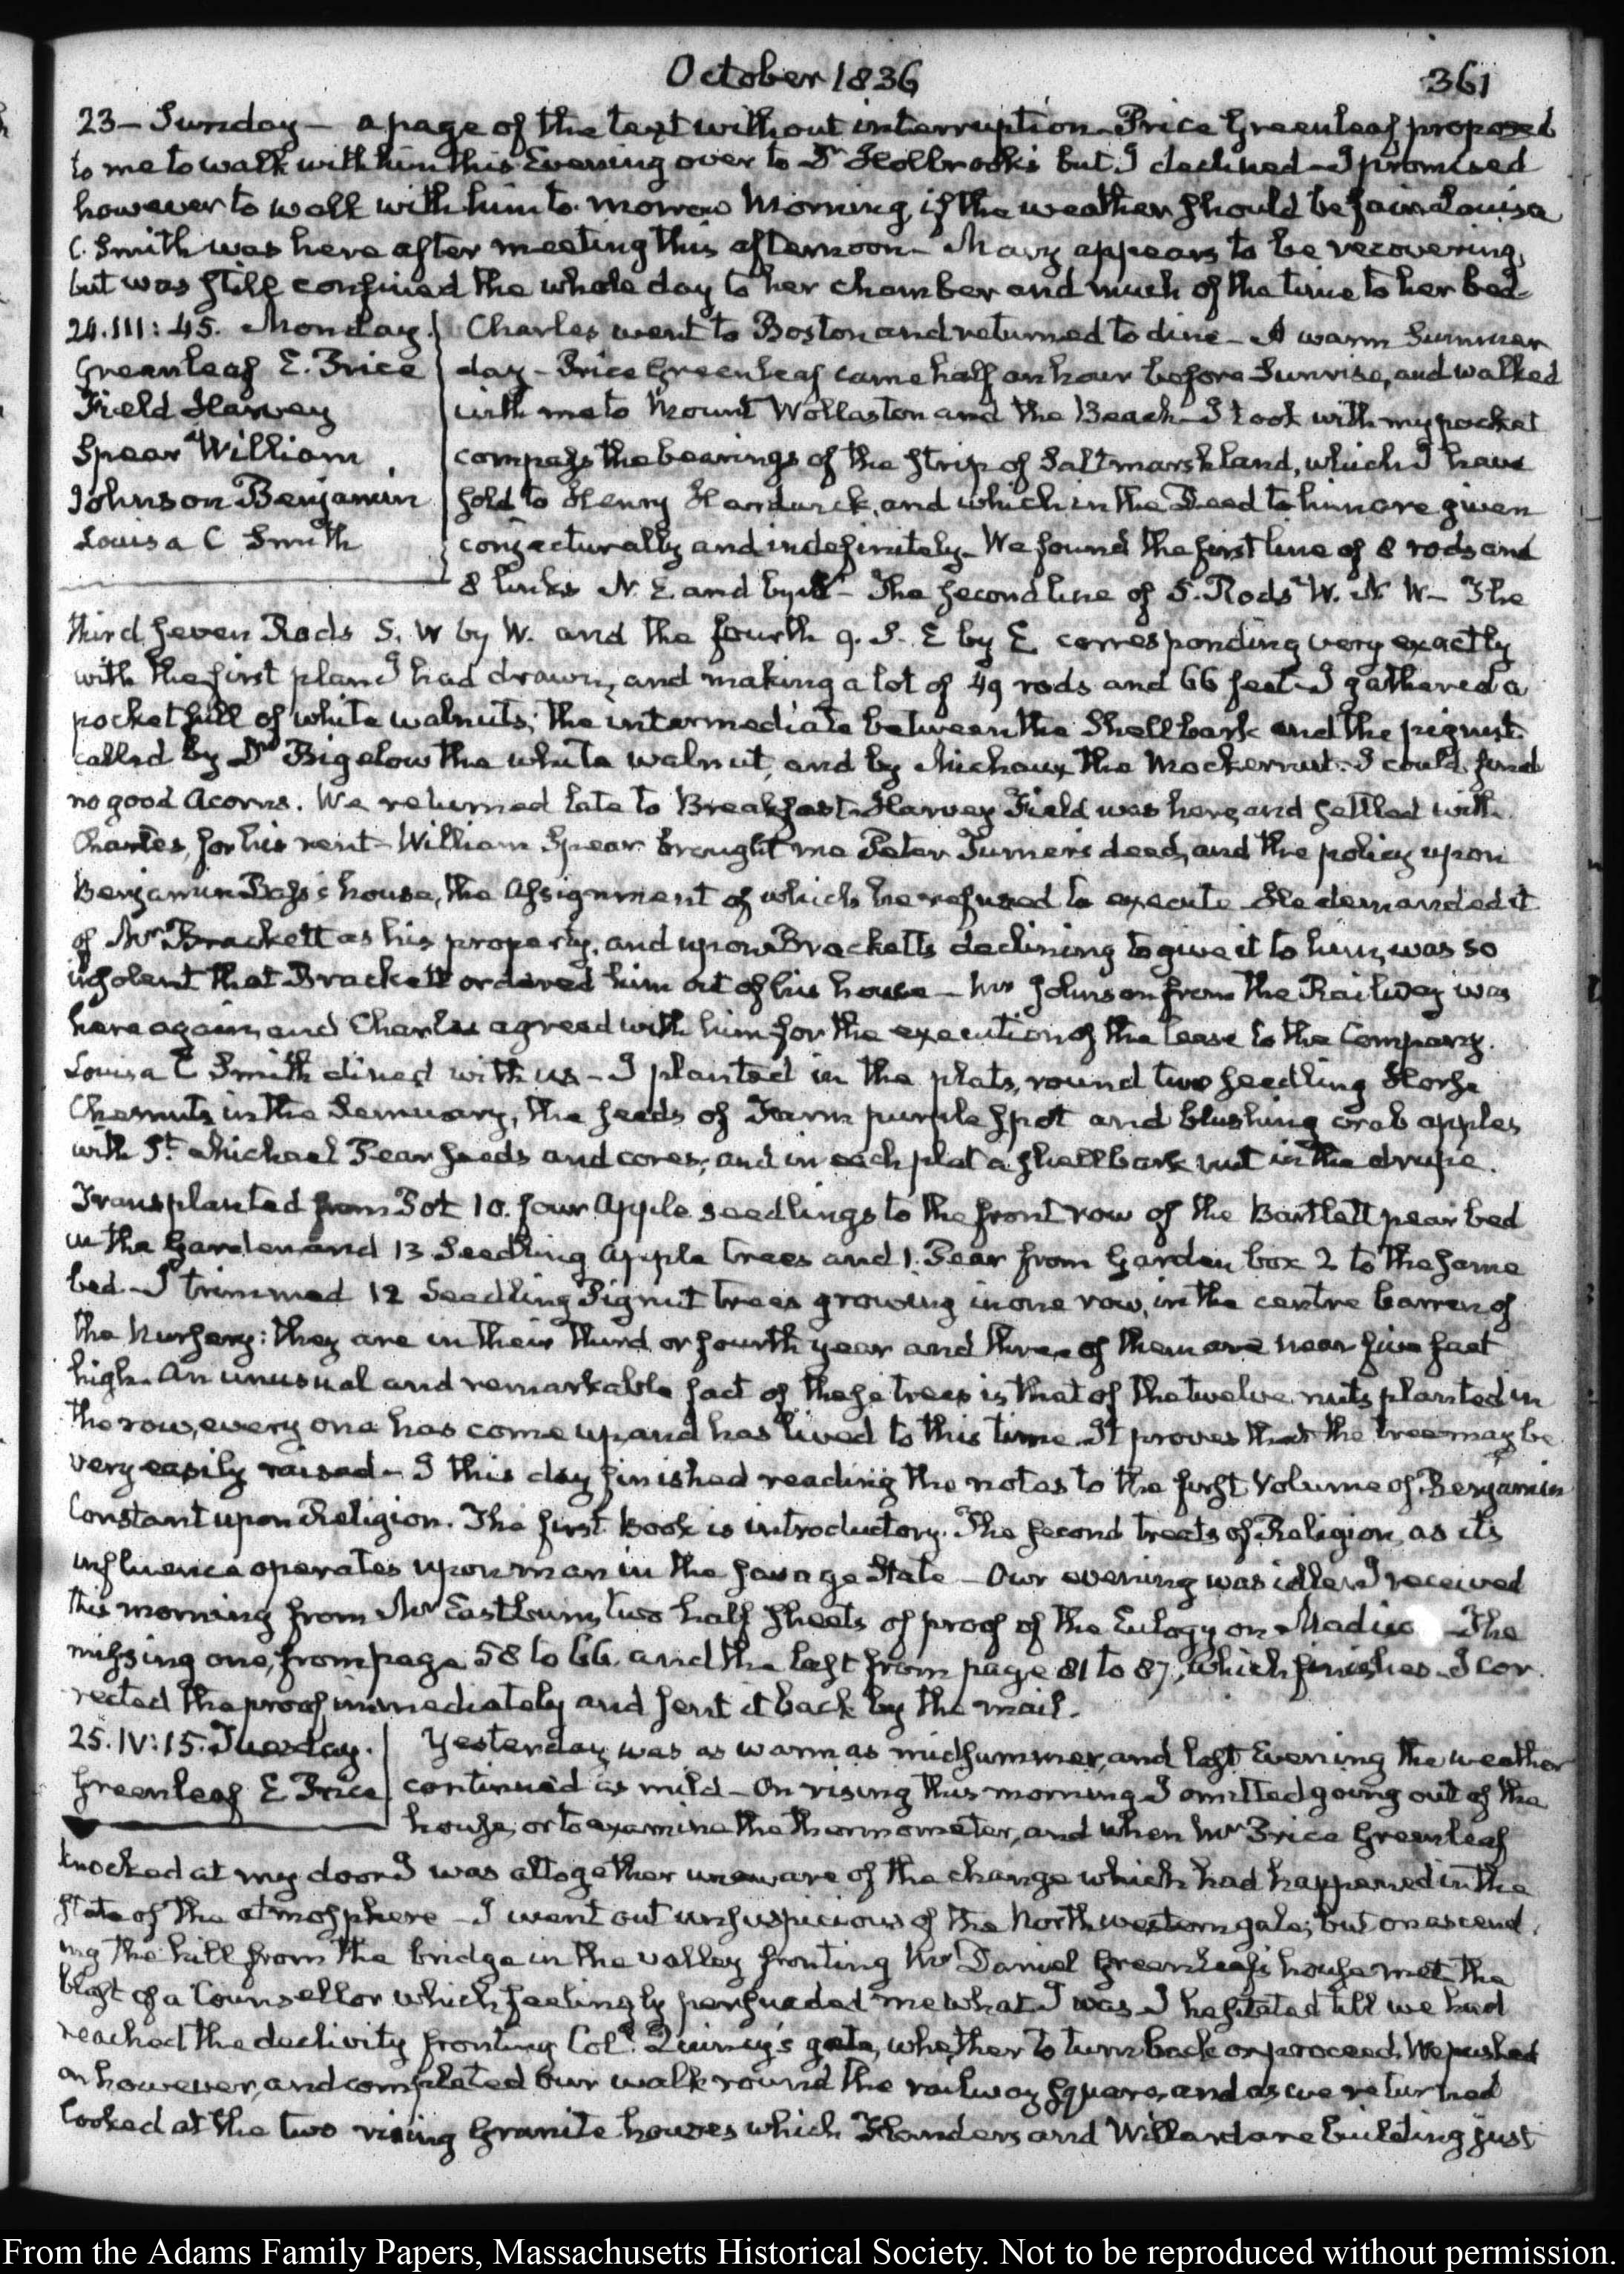 October 1836
361
23 – Sunday – a page of the text without interruption – Price Greenleaf proposed
to me to walk with him this Evening over to Dr Holbrook's but I declined – I promised
however to walk with him to-morrow Morning, if the weather should be fair. Louisa
C. Smith was here after meeting this afternoon – Mary appears to be recovering,
but was still confined the whole day to her chamber and much of the time to her bed –
24. III: 45. Monday.
Greenleaf E. Price
Field Harvey
Spear William
Johnson Benjamin
Louisa C Smith
Charles went to Boston and returned to dine – A warm Summer
day – Price Greenleaf came half an hour before Sunrise, and walked
with me to Mount Wollaston and the Beach – I took with my pocket
compass the bearings of the strip of Salt marsh land, which I have
sold to Henry Hardwick, and which in the Deed to him are given
conjecturally and indefinitely – We found the first line of 8 rods and
8 links N. E. and by – The second line of 5. Rods W. N. W – The
third seven Rods S. W by W. and the fourth 9. S. E by E corresponding very exactly
with the first plan I had drawn, and making a lot of 49 rods and 66 feet – I gathered a
pocket full of white walnuts; the intermediate between the Shellbark and the pignut
called by Dr Bigelow the white walnut, and by Michaux the Mockernut – I could find
no good Acorns. We returned late to Breakfast – Harvey Field was here, and settled with
Charles, for his rent – William Spear brought me Peter Turner's deed, and the policy upon
Benjamin Bass's house, the Assignment of which he refused to execute. He demanded it
of Mr Brackett as his property, and upon Bracketts declining to give it to him, was so
insolent that Brackett ordered him out of his house – Mr Johnson from the Railway was
here again, and Charles agreed with him for the execution of the lease to the Company.
Louisa C Smith dined with us – I planted in the plats, round two seedling Horse
Chesnuts in the Seminary, the seeds of Farm purple spot and blushing crab apples
with St Michael Pear seeds and cores; and in each plat a shellbark nut in the drupe.
Transplanted from Pot 10. four Apple seedlings to the front row of the Bartlett pear bed
in the Garden and 13 Seedling Apple trees and 1. Pear from Garden box 2 to the same
bed – I trimmed 12 Seedling Pignut trees growing in one row, in the centre barren of
the Nursery: they are in their third or fourth year and three of them are near five feet
high. An unusual and remarkable fact of these trees is that of the twelve nuts planted in
the row, every one has come up, and has lived to this time. It proves that the tree may be
very easily raised – I this day finished reading the notes to the first Volume of Benjamin
Constant upon Religion. The first Book is introductory. The second treats of Religion, as its
influence operates upon man in the savage State – Our evening was idle. I received
this morning from Mr Eastburn, two half sheets of proof of the Eulogy on Madiso – The
missing one, from page 58 to 66. and the last from page 81 to 87, which finishes – I cor
rected the proof immediately and sent it back by the mail.
25. IV: 15. Tuesday.
Greenleaf E Price
Yesterday was as warm as midsummer, and last Evening the weather
continued as mild – On rising this morning I omitted going out of the
house, or to examine the thermometer, and when Mr Price Greenleaf
knocked at my door I was altogether unaware of the change which had happened in the
state of the atmosphere – I went out unsuspicious of the North western gale; but on ascend
ing the hill from the bridge in the valley fronting Mr Daniel Greenleaf's house met the
blast of a Counsellor which feelingly persuaded me what I was. I hesitated till we had
reached the declivity fronting Col. Quincy's gate, whether to turn back or proceed. We pushed
on however, and completed our walk round the railway square, and as we returned
looked at the two rising Granite houses which Flanders and Willard are building just
From the Adams Family Papers, Massachusetts Historical Society. Not to be reproduced without permission.